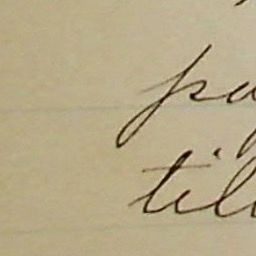 pa
til